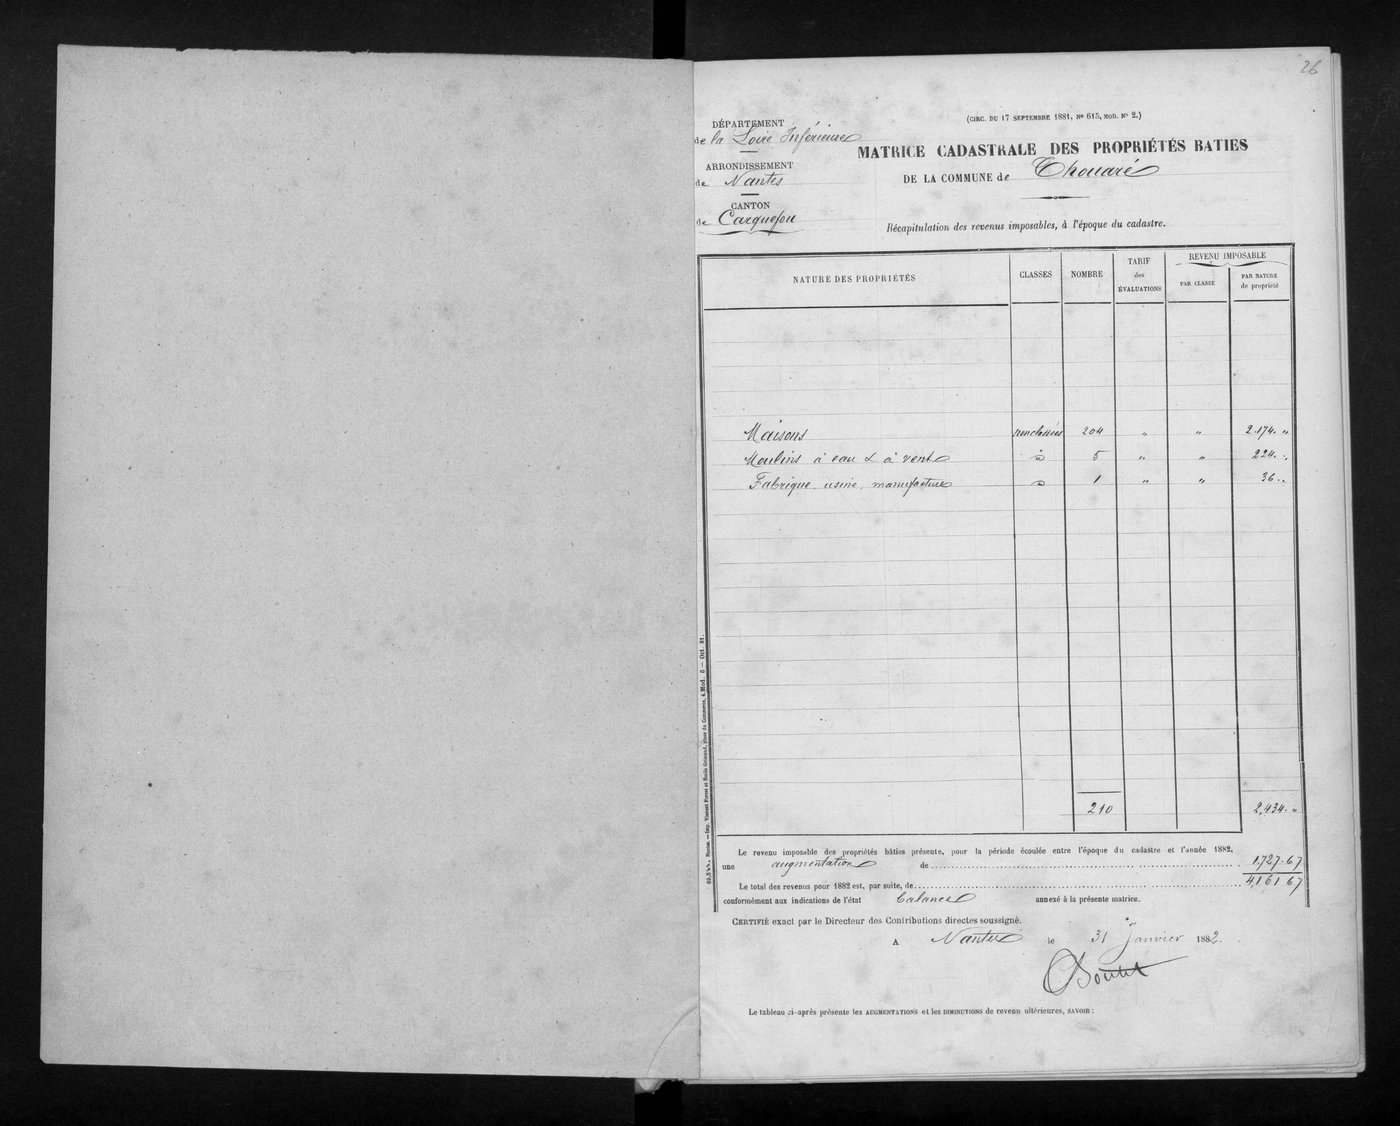 26
DÉPARTEMENT
de la Loire Inférieure
ARRONDISSEMENT
de Nantes
CANTON
de Carquefou
(CIRC. DU 17 SEPTEMBRE 1881, No 615, MOD. No 2.)
MATRICE CADASTRALE DES PROPRIÉTÉS BATIES
DE LA COMMUNE de Thouaré
Récapitulation des revenus imposables, à l'époque du cadastre.
NATURE DES PROPRIÉTÉS CLASSES NOMBRE TARIF des ÉVALUATIONS REVENU IMPOSABLE
PAR CLASSE PAR NATURE de propriété
Maisons non classées 204 " " 2.174. "
Moulins à eau & à vent d° 5 " " 224. "
Fabrique usine manufacture d° 1 " " 36. "
210 2,434. "
Le revenu imposable des propriétés bâties présente, pour la période écoulée entre l'époque du cadastre et l'année 1882,
une augmentation de 1.727.67
Le total des revenus pour 1882 est, par suite, de 4,161 67
conformément aux indications de l'état balance annexé à la présente matrice.
CERTIFIÉ exact par le Directeur des Contributions directes soussigné.
A Nantes le 31 Janvier 1882.
Le tableau ci-après présente les AUGMENTATIONS et les DIMINUTIONS de revenu ultérieures, SAVOIR :
Nantes. — Imp. Vincent Forest et Émile Grimaud, place du Commerce, 4. Mod. 5 — Oct. 81.